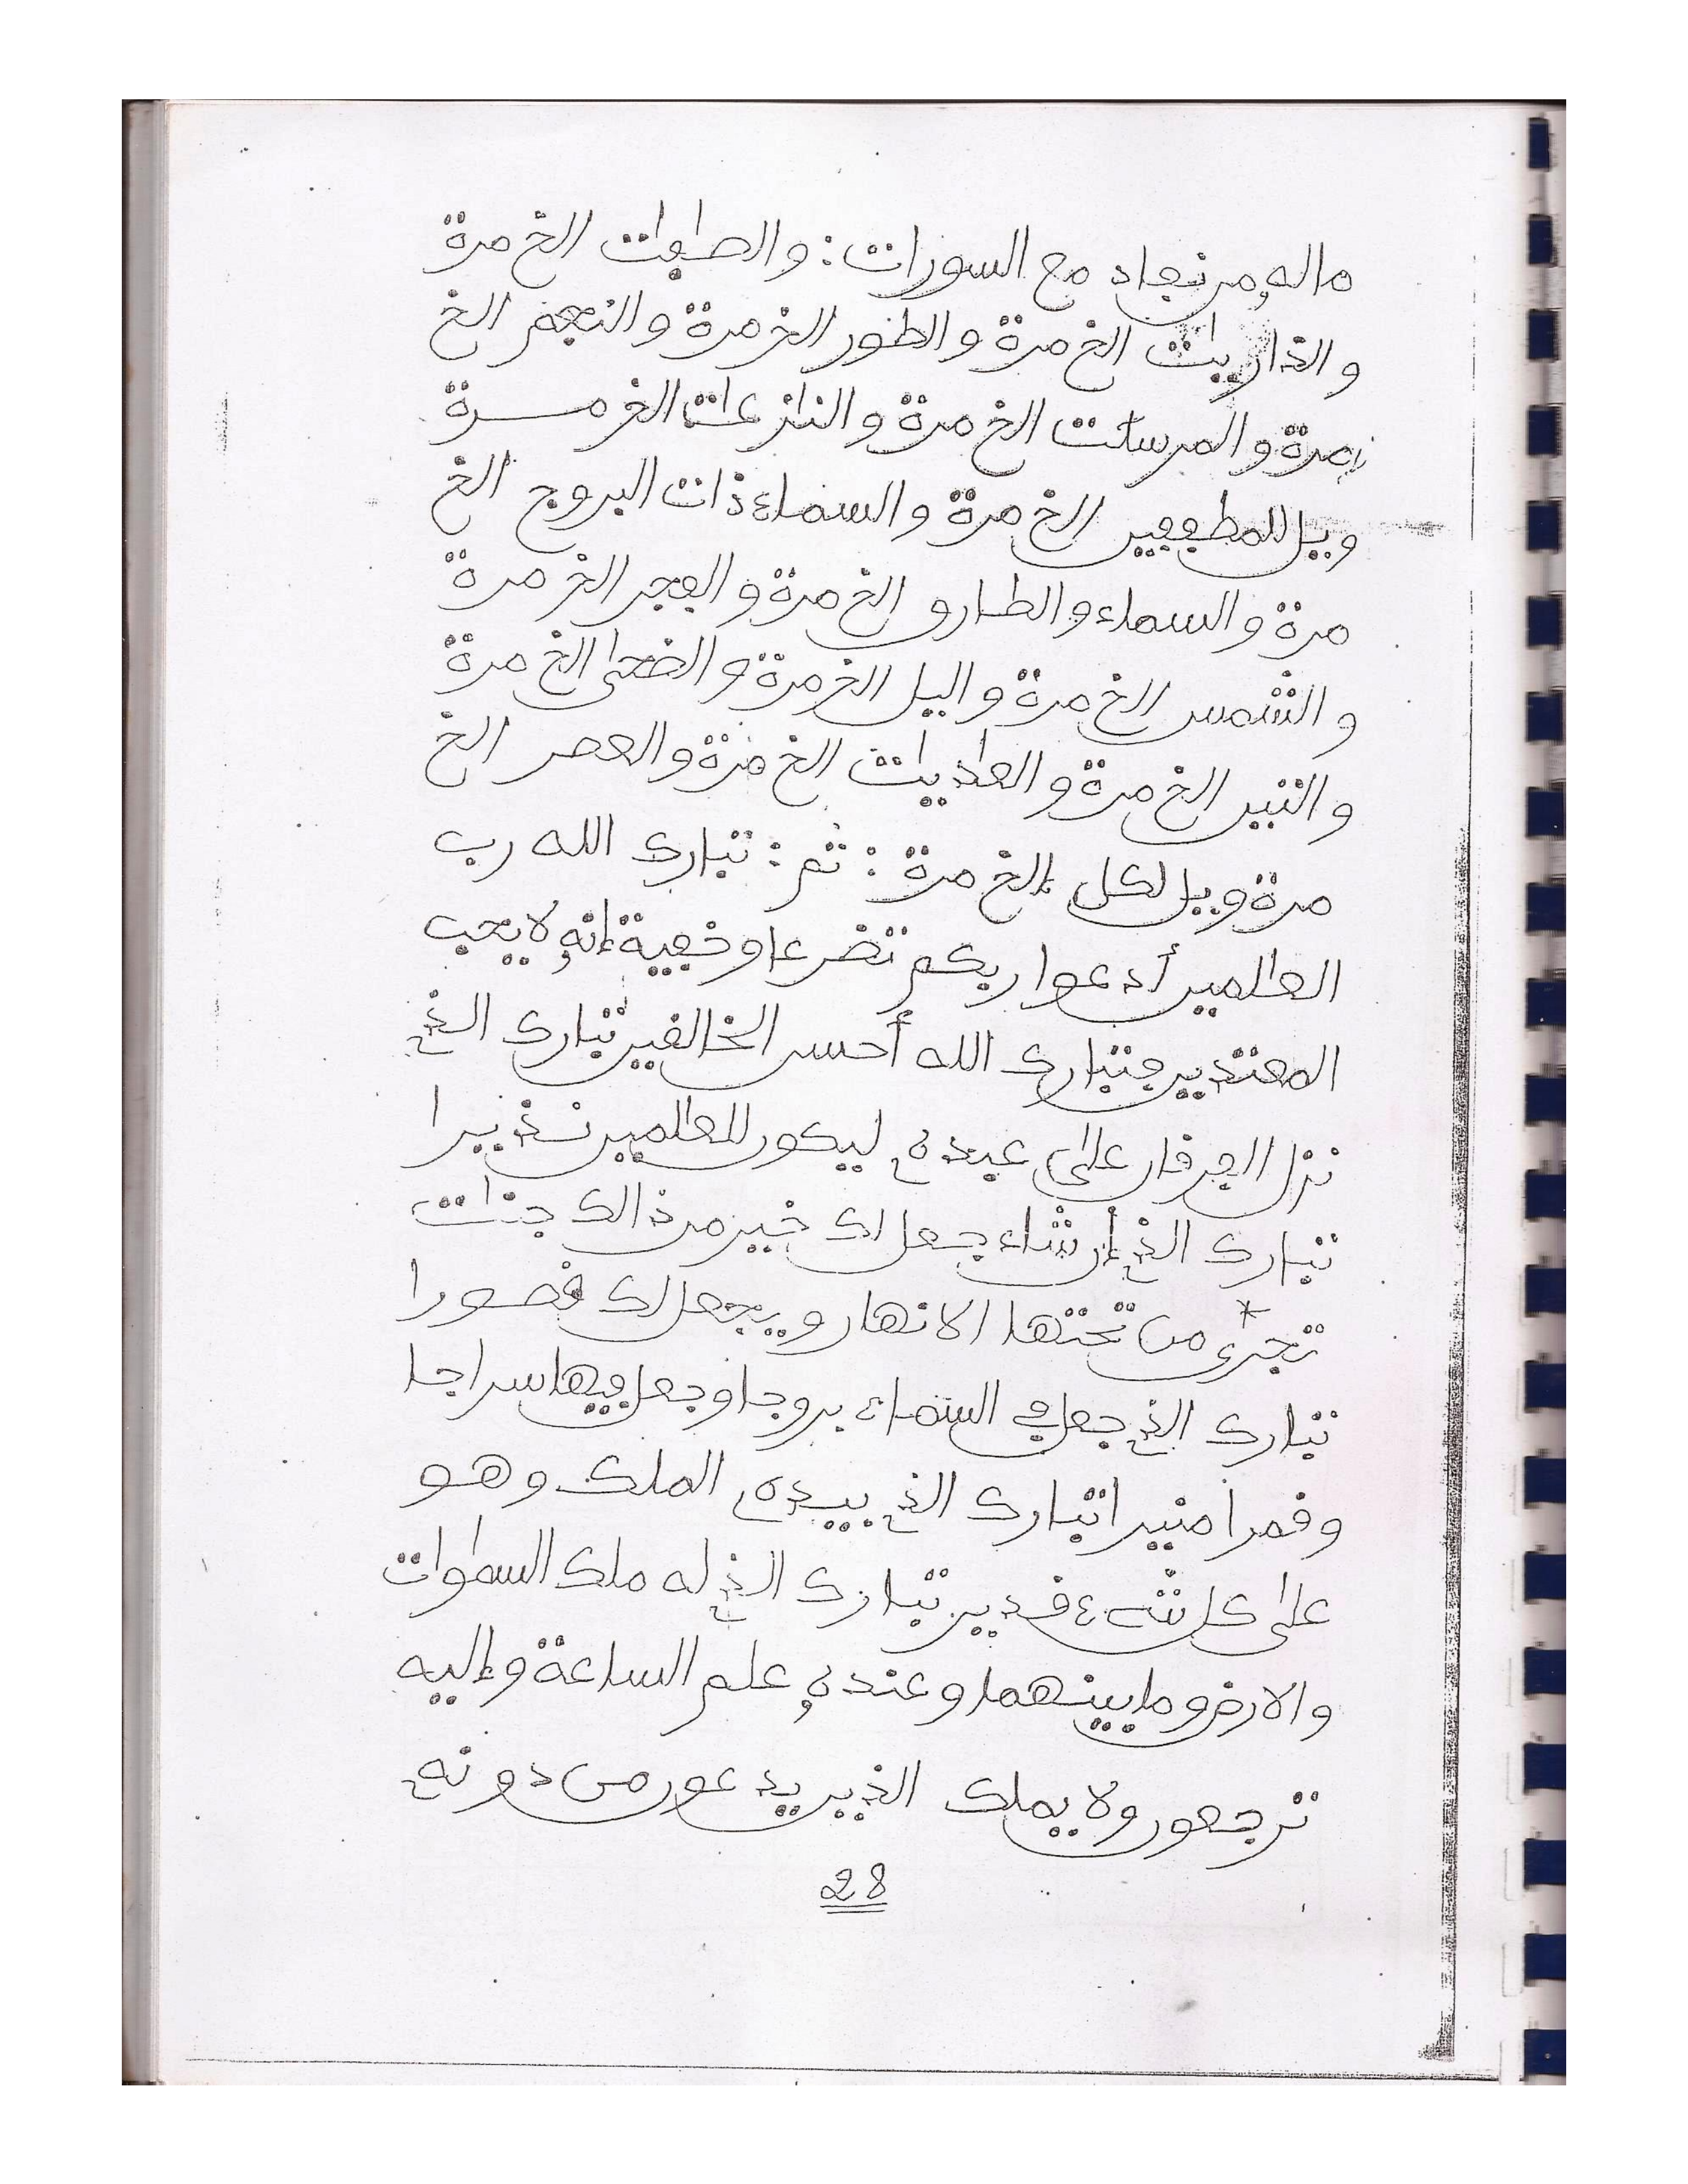 ماله من نفاد مع السورات: والصٰفٰت الخ مرة
والذاريٰت الخ مرة والطور الخ مرة والنجم الخ
مرة والمرسلٰت الخ مرة والنازعٰت الخ مرة
ويل للمطففين الخ مرة والسماء ذات البروج الخ
مرة والسماء والطارق الخ مرة والفجر الخ مرة
والشمس الخ مرة واليل الخ مرة والضحى الخ مرة
والتين الخ مرة والعاديٰت الخ مرة والعصر الخ
مرة ويل لكل إلخ مرة: ثم: تبارك الله رب
العالمين أدعوا ربكم تضرعا وخفية إنه لا يحب
المعتدين فتبارك الله أحسن الخالقين تبارك الذي
نزل الفرقان على عبده ليكون للعالمين نذيرا
تبارك الذي إن شاء جعل لك خير من ذالك جنٰت
تجري من تحتها الانهار ويجعل لك قصورا
تبارك الذي جعل في السماء بروجا وجعل فيها سراجا
وقمرا منيرا تبارك الذي بيده الملك وهو
على كل شيء قدير تبارك الذي له ملك السمٰوٰت
والارض وما بينهما وعنده علم الساعة وإليه
ترجعون ولا يملك الذين يدعون من دونه
28